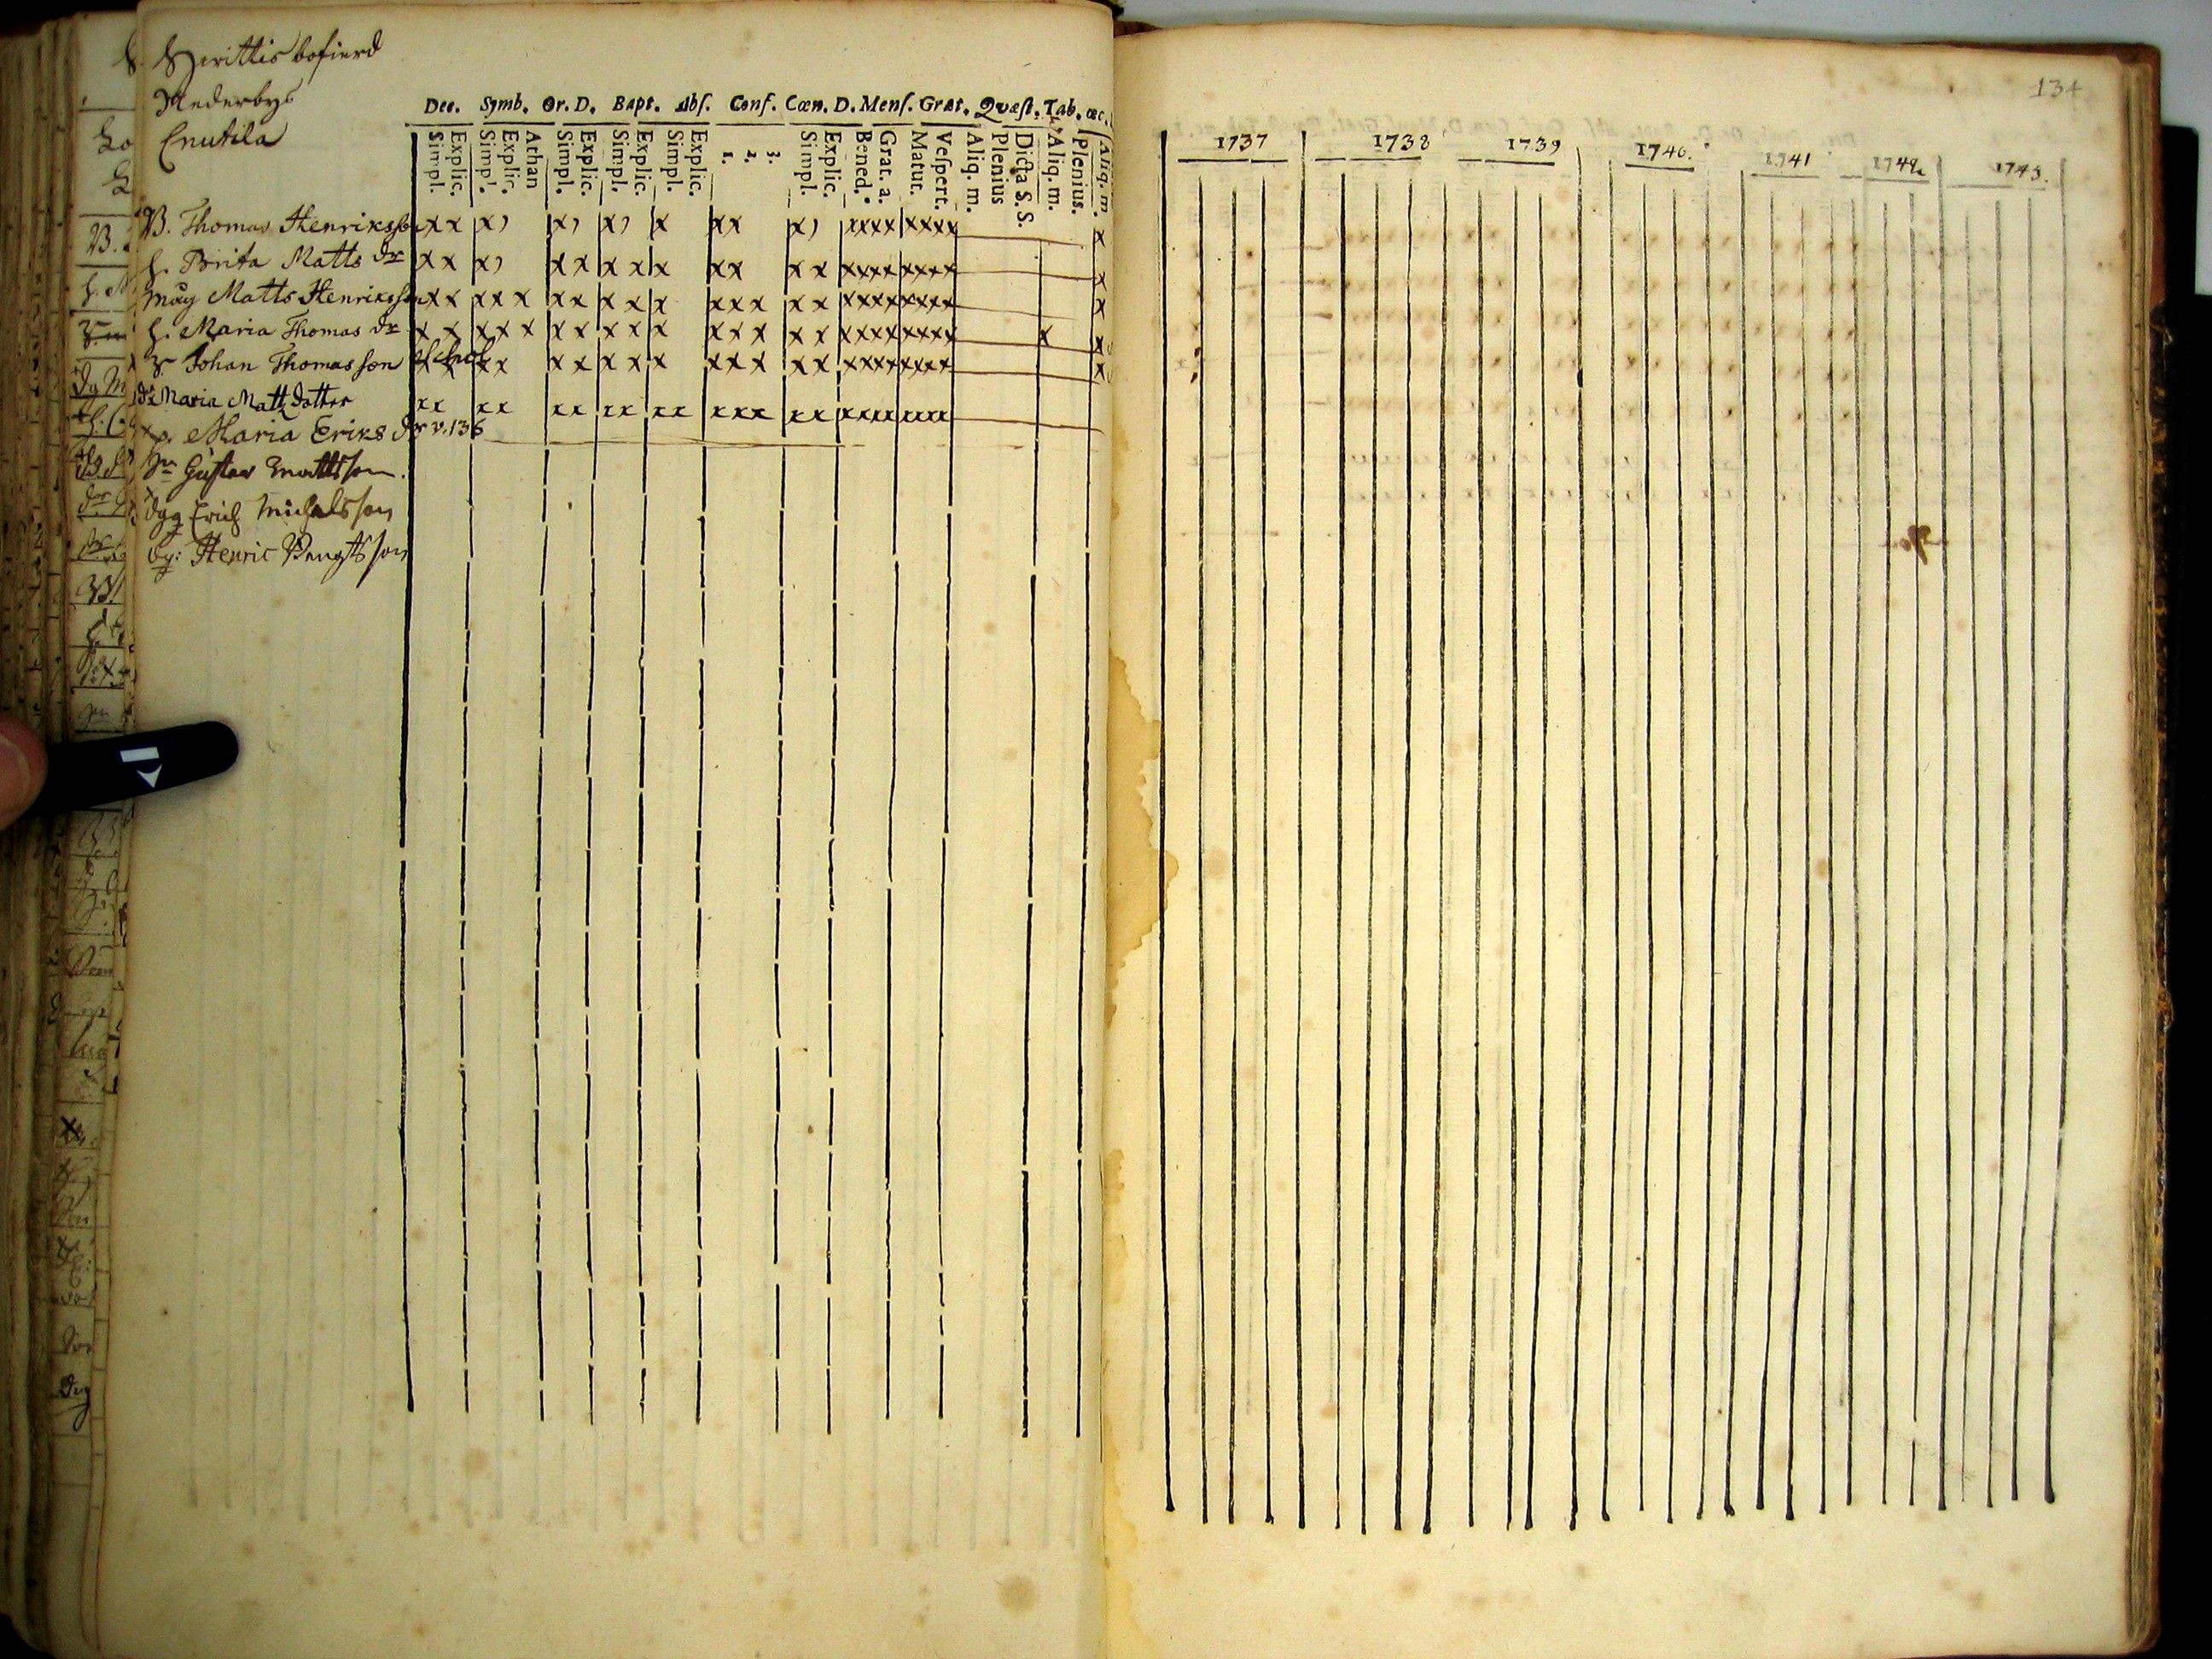 Nederbys
Cnutila
Dec. Symb. Or. D. Bapt. Abſ. Conf. Cœn. D. Menſ. Grat. Quæſt. Tab. œc.
Simpl. Explic. Simpl. Explic. Athan Simpl. Explic. Simpl. Explic. Simpl. Explic. 1. 2. 3. Simpl. Explic. Bened. Grat. a. Matut. Veſpert. Aliq. m. Plenius Dicta S. S. Aliq. m. Plenius. Aliq. m.
B. Thomas Henriksson xx x, x, x, x xx x, xxxx xxxx x
h. Brita Matts dr x x x, x x x x x x x x x xxxx xxxx x
måg Matts Henriksson x x x x x x x x x x x x x x x xxxx xxxx x
h. Maria Thomas dr x x x x x x x x x x x x x x x xxxx xxxx x x
Johan Thomasson x x x x x x x x x x x x x x xxxx xxxx x
Maria Matts dotter xx xx xx xx xx xxx xx xxxx xxxx
p. Maria Eriks dr v. 136
Gustav Mattsson.
Erich Michelsson
Henric Bengtsson
134
1737 1738 1739 1740. 1741 1742 1743.